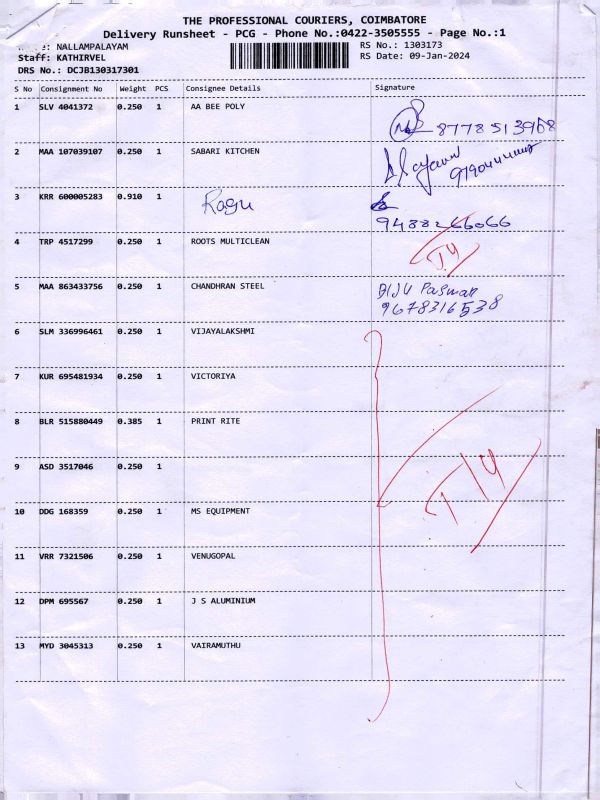 THE PROFESSIONAL COURIERS, COIMBATORE
Delivery Runsheet - PCG - Phone No.:0422-3505555 - Page No.:1
NALLAMPALAYAM RS No.: 1303173
Staff: KATHIRVEL RS Date: 09-Jan-2024
DRS No.: DCJB130317301
S No Consignment No Weight PCS Consignee Details Signature
1 SLV 4041372 0.250 1 AA BEE POLY
8778513968
2 MAA 107039107 0.250 1 SABARI KITCHEN
3 KRR 600005283 0.910 1 Ragu
9488266066
4 TRP 4517299 0.250 1 ROOTS MULTICLEAN
5 MAA 863433756 0.250 1 CHANDHRAN STEEL BIJU
9678316538
6 SLM 336996461 0.250 1 VIJAYALAKSHMI
7 KUR 695481934 0.250 1 VICTORIYA
8 BLR 515880449 0.385 1 PRINT RITE
9 ASD 3517046 0.250 1
10 DDG 168359 0.250 1 MS EQUIPMENT
11 VRR 7321506 0.250 1 VENUGOPAL
12 DPM 695567 0.250 1 J S ALUMINIUM
13 MYD 3045313 0.250 1 VAIRAMUTHU